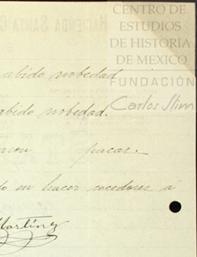 HACIENDA SANTA C
CENTRO DE
ESTUDIOS
DE HISTORIA
DE MEXICO
FUNDACIÓN
Carlos Slim
abido nobedad
abido nobedad.
pacas.
su hacer cocedores á
Martinez